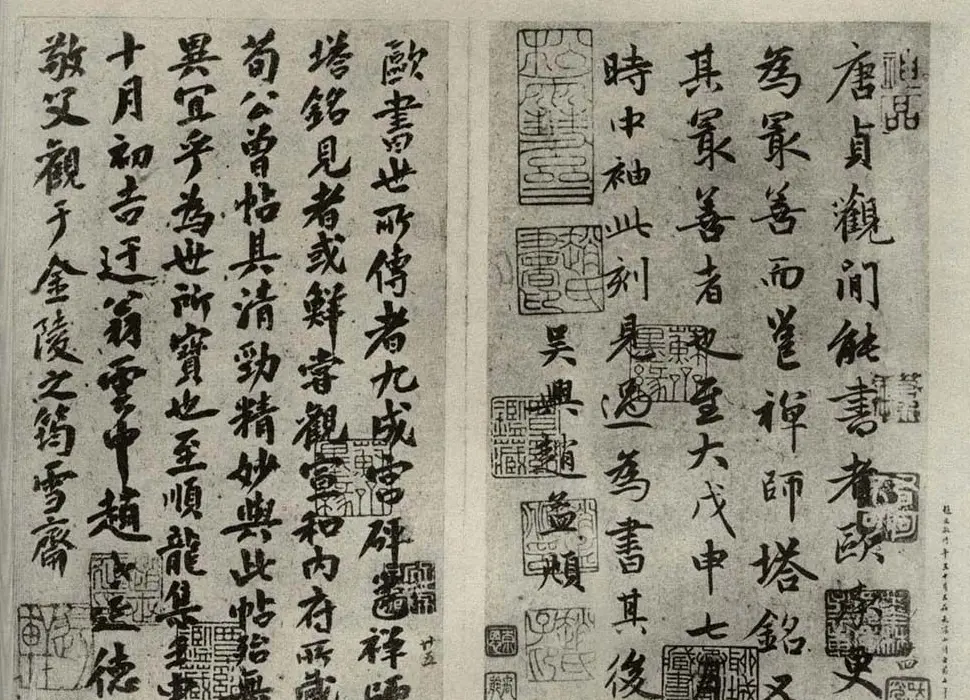 唐貞觀間能書者歐陽率更
為冣善而邕禪師塔銘又
其冣善者也至大戊申七
時中袖此刻見過為書其後
吳興趙孟頫
歐書世所傳者九成宮碑邕禪師
塔銘見者或鮮嘗觀宣和內府所藏
荀公曾帖具清勁精妙與此帖殆無
異宜乎為世所寶也至順龍集辛未
十月初吉迂翁雲中趙世延德
敬父觀于金陵之筠雪齋
神品
松雪齋
趙氏書印
廿五